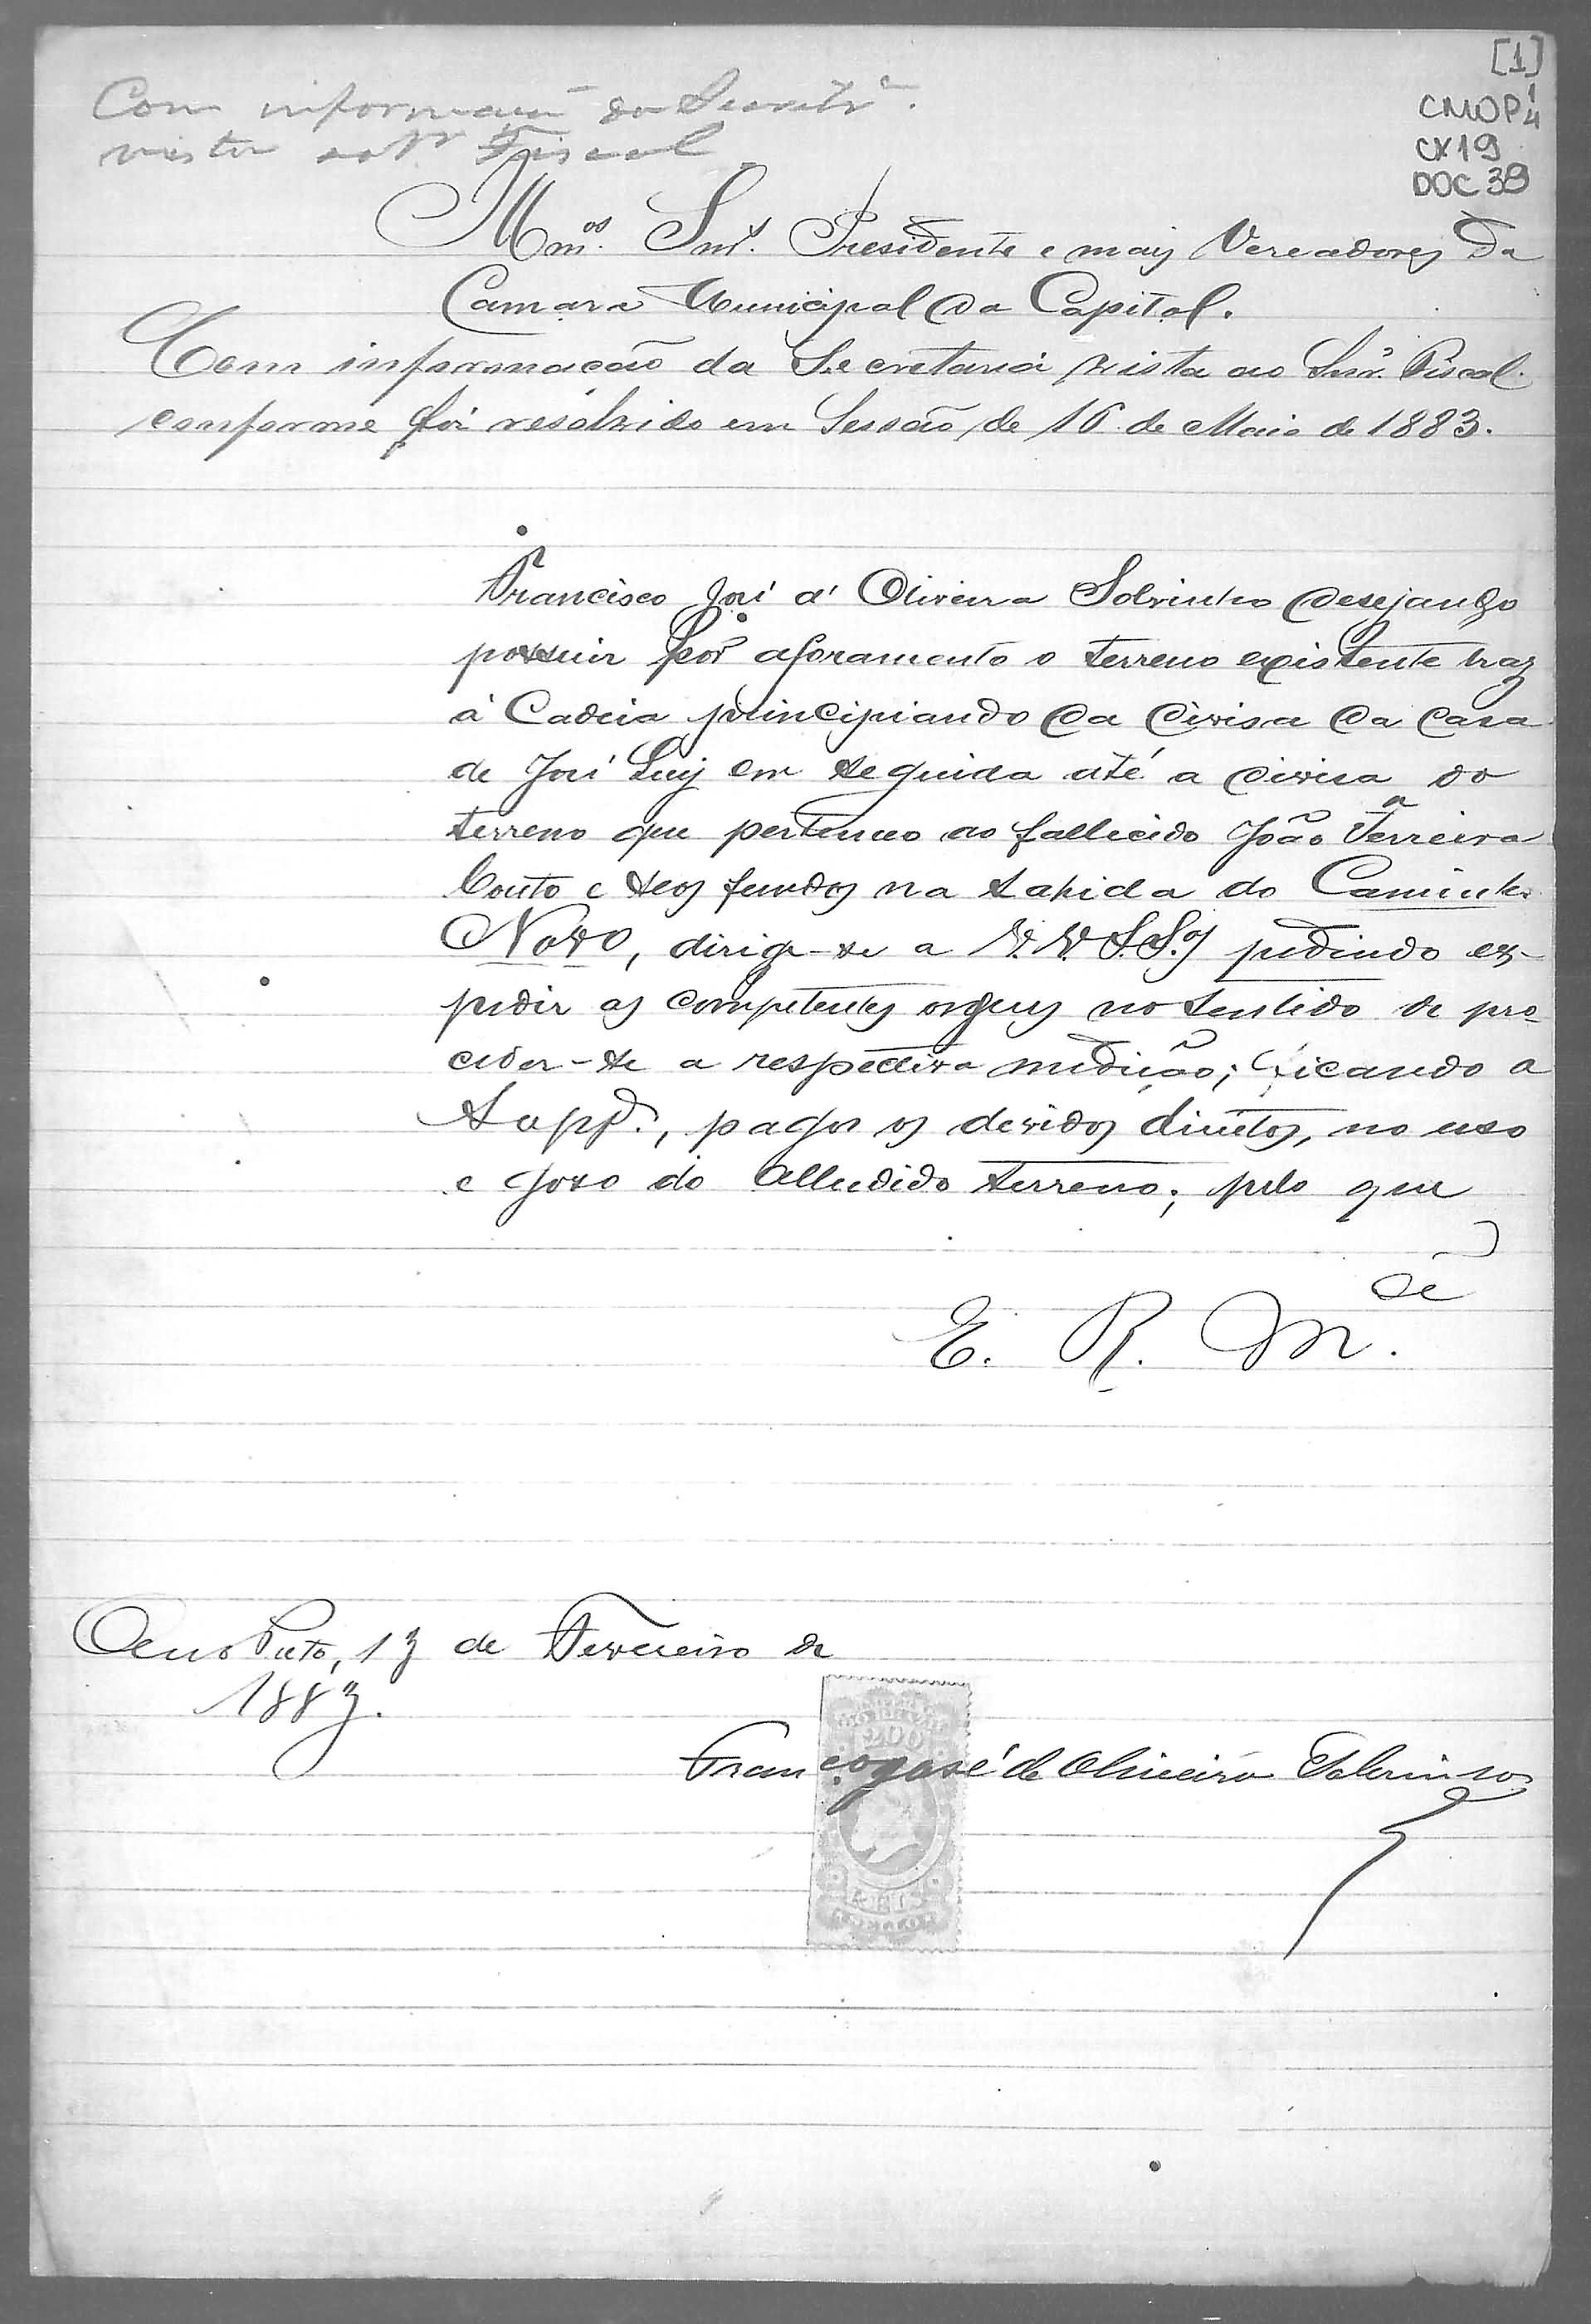 [1]
CMOP 1/4
CX19
DOC 39
Com informação da Secretrª.
vista ao Sr Fiscal
Illmos. Snrs. Presidente e mais Vereadores da
Camara Municipal da Capital.
Com informação da Secretaria vista ao Snr. Fiscal
conforme foi resolvido em Sessão de 16 de Maio de 1883.
Francisco José d' Oliveira Sobrinho desejando
possuir por aforamento o terreno existente traz
à Cadeia principiando da divisa da casa
de José Luiz em seguida até a divisa do
terreno que pertenceo ao fallecido João Ferreira
Couto e seos fundos na sahida do Caminho
Novo, dirige-se a V.V. S.Sas pedindo ex-
pedir as competentes ordens no sentido de pro-
ceder-se a respectiva medição; ficando o
Suppe., pagos os devidos direitos, no uso
e goso do alludido terreno; pelo que
E. R. Mcê.
Ouro Preto, 13 de Fevereiro de
1883.
Franco José de Oliveira Sobrinho
200
REIS